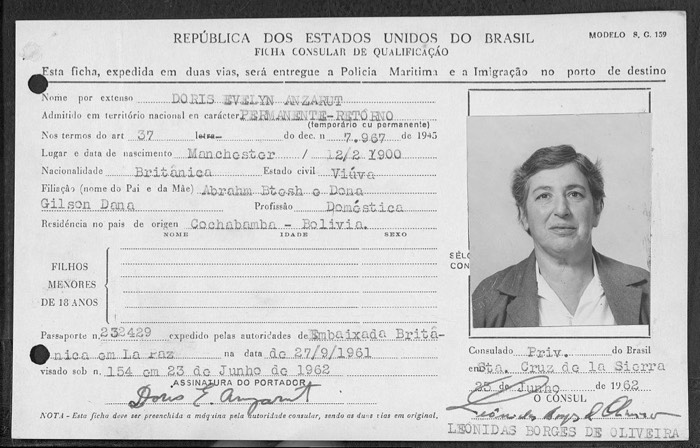 REPÚBLICA DOS ESTADOS UNIDOS DO BRASIL
MODELO S. C. 139
FICHA CONSULAR DE QUALIFICAÇÃO
Esta ficha, expedida em duas vias, será entregue a Policia Maritima e a Imigração no porto de destino
Nome por extenso DORIS EVELYN ANZARUT
Admitido em território nacional en carácter PERMANENTE-RETÔRNO
(temporário cu permanente)
Nos termos do art 37 letra do dec. n 7.967 de 1945
Lugar e data de nascimento Manchester / 12/2 1900
Nacionalidade Britânica Estado civil Viúva
Filiação (nome do Pai e da Mãe) Abrahm Btesh e Dona
Gilson Dana Profissão Doméstica
Residência no pais de origen Cochabamba - Bolivia.
NOME IDADE SEXO
FILHOS
MENORES
DE 18 ANOS
SÊLO
CON
Passaporte n. 232429 expedido pelas autoridades de Embaixada Britâ-
nica em La Paz na data de 27/9/1961
visado sob n. 154 em 23 de Junho de 1962
ASSINATURA DO PORTADOR
Doris E. Anzarut
NOTA - Esta ficha dever ser preenchida a máquina pela autoridade consular, sendo as duas vias em original.
Consulado Priv. do Brasil
em Sta. Cruz de la Sierra
23 de Junho 1962
O CONSUL
LEÔNIDAS BORGES DE OLIVEIRA